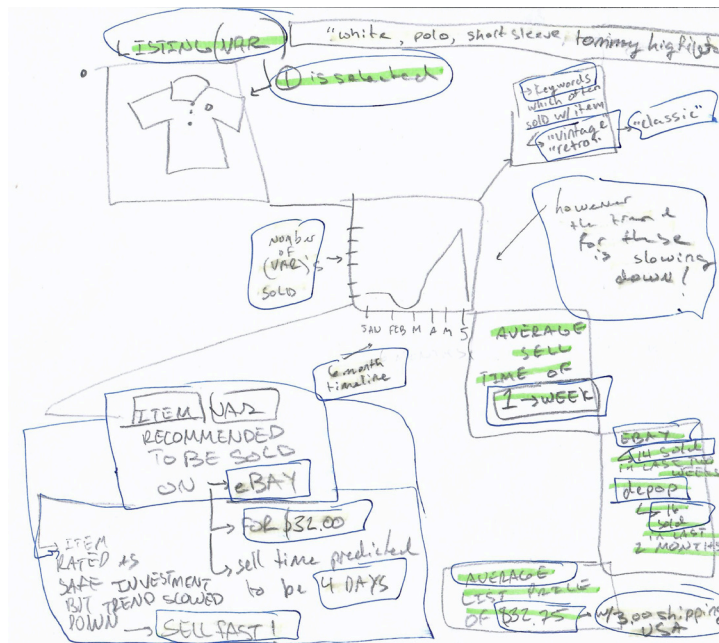 LISTING (VAR)
"white, polo, short sleeve, tommy highfiger
① is selected
→ keywords
which often
sold w/ item
"vintage"
"retro"
"classic"
however
the trend
for these
is slowing
down!
number
of
(VAR)'s
SOLD
JAN FEB M A M J
6 month
timeline
AVERAGE
SELL
TIME OF
1 → WEEK
ITEM VAR
RECOMMENDED
TO BE SOLD
ON → eBAY
FOR $32.00
sell time predicted
to be 4 DAYS
ITEM
RATED AS
SAFE INVESTMENT
BUT TREND SLOWED
DOWN → SELL FAST!
EBAY
14 sold
IN LAST TWO
WEEKS
depop
16
sold
IN LAST
2 MONTHS
AVERAGE
LIST PRICE
OF $32.75
w/ 3.00 shipping
USA